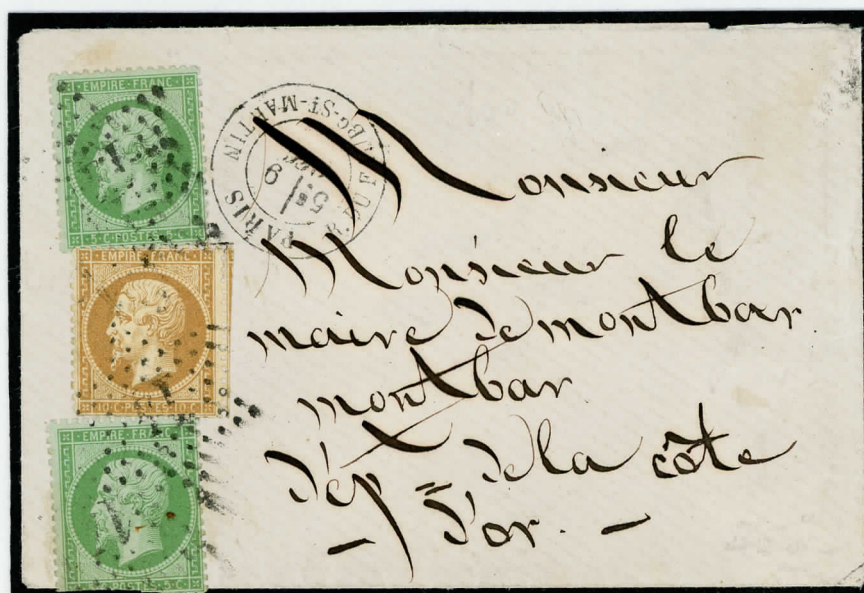 EMPIRE·FRANC·
5·C·POSTES·5·C·
EMPIRE·FRANC·
10·C·POSTES·10·C·
EMPIRE·FRANC
POSTES·5·C·
PARIS
FBG-ST-MARTIN
5E
9
Monsieur
Monsieur le
maire de montbar
montbar
dép = de la côte
d'or. -